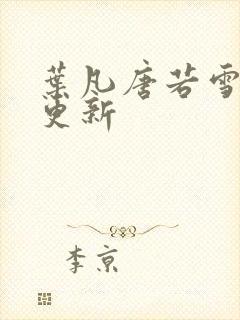 葉凡唐若雪
更新
李京